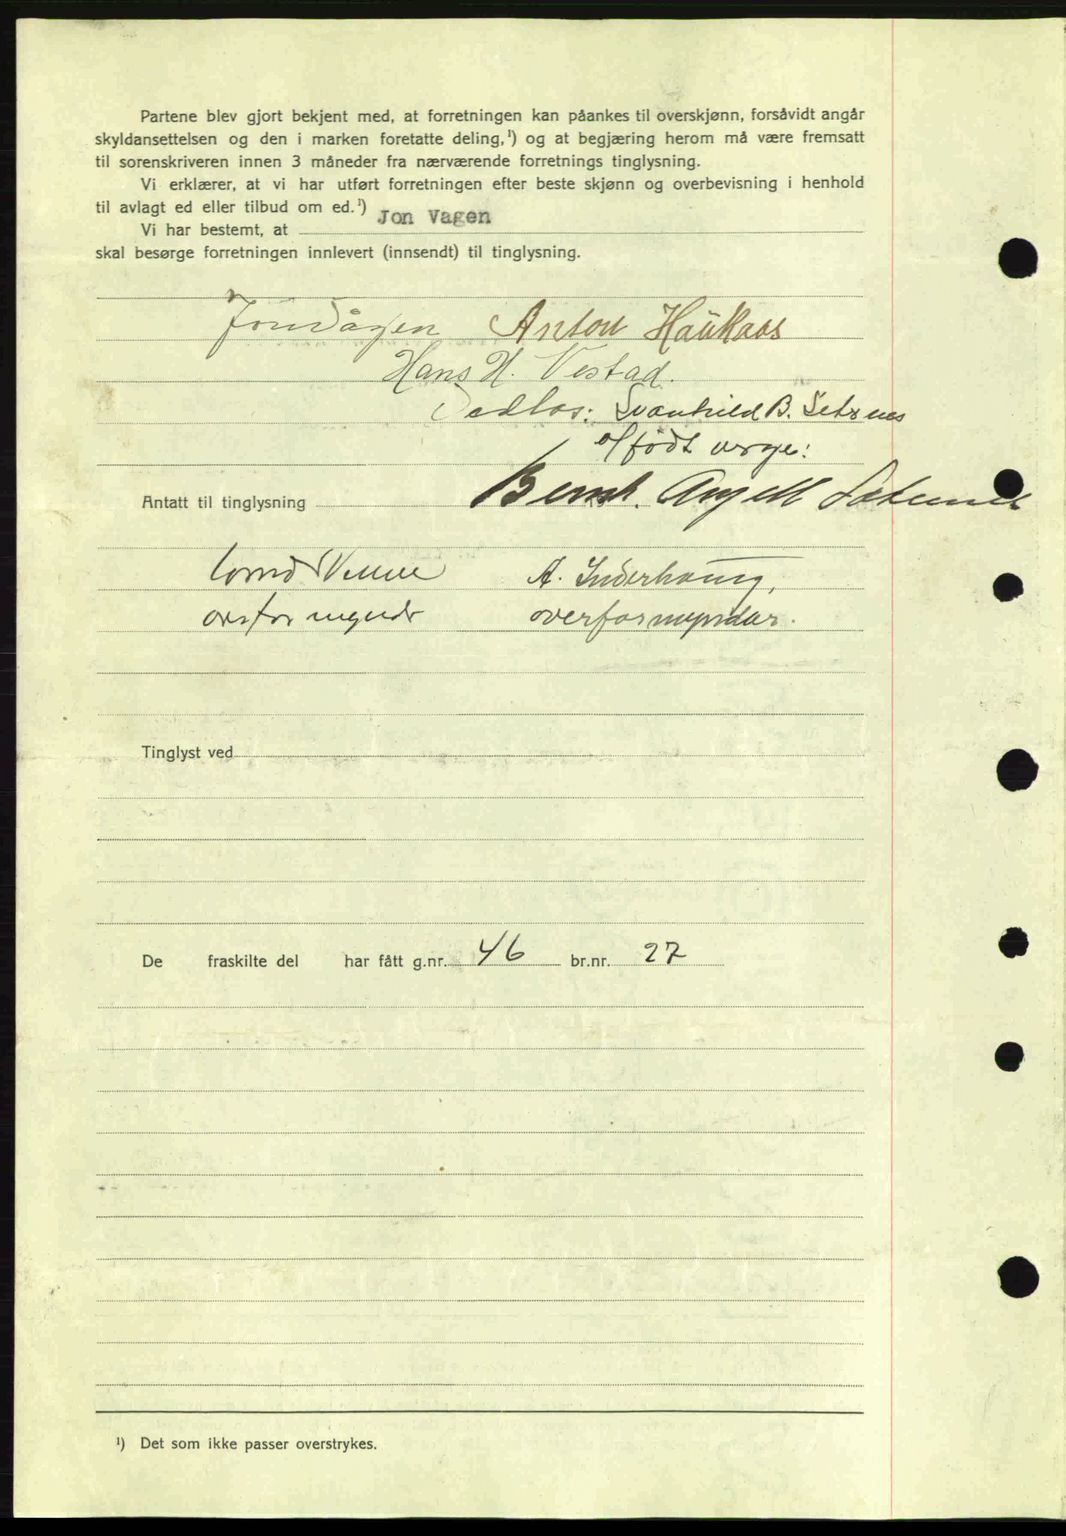 Partene blev gjort bekjent med, at forretningen kan påankes til overskjønn, forsåvidt angår
skyldansettelsen og den i marken foretatte deling,¹) og at begjæring herom må være fremsatt
til sorenskriveren innen 3 måneder fra nærværende forretnings tinglysning.
Vi erklærer, at vi har utført forretningen efter beste skjønn og overbevisning i henhold
til avlagt ed eller tilbud om ed.¹)
Vi har bestemt, at Jon Vagen
skal besørge forretningen innlevert (innsendt) til tinglysning.
Jon Vågen Anton Haukaas
Hans H. Vestad.
Svanhild B. Setsnes
født verge:
Antatt til tinglysning Bernh. Angell
A. Inderhaug,
overformynder overformynder.
Tinglyst ved
De fraskilte del har fått g.nr. 46 br.nr. 27
¹) Det som ikke passer overstrykes.